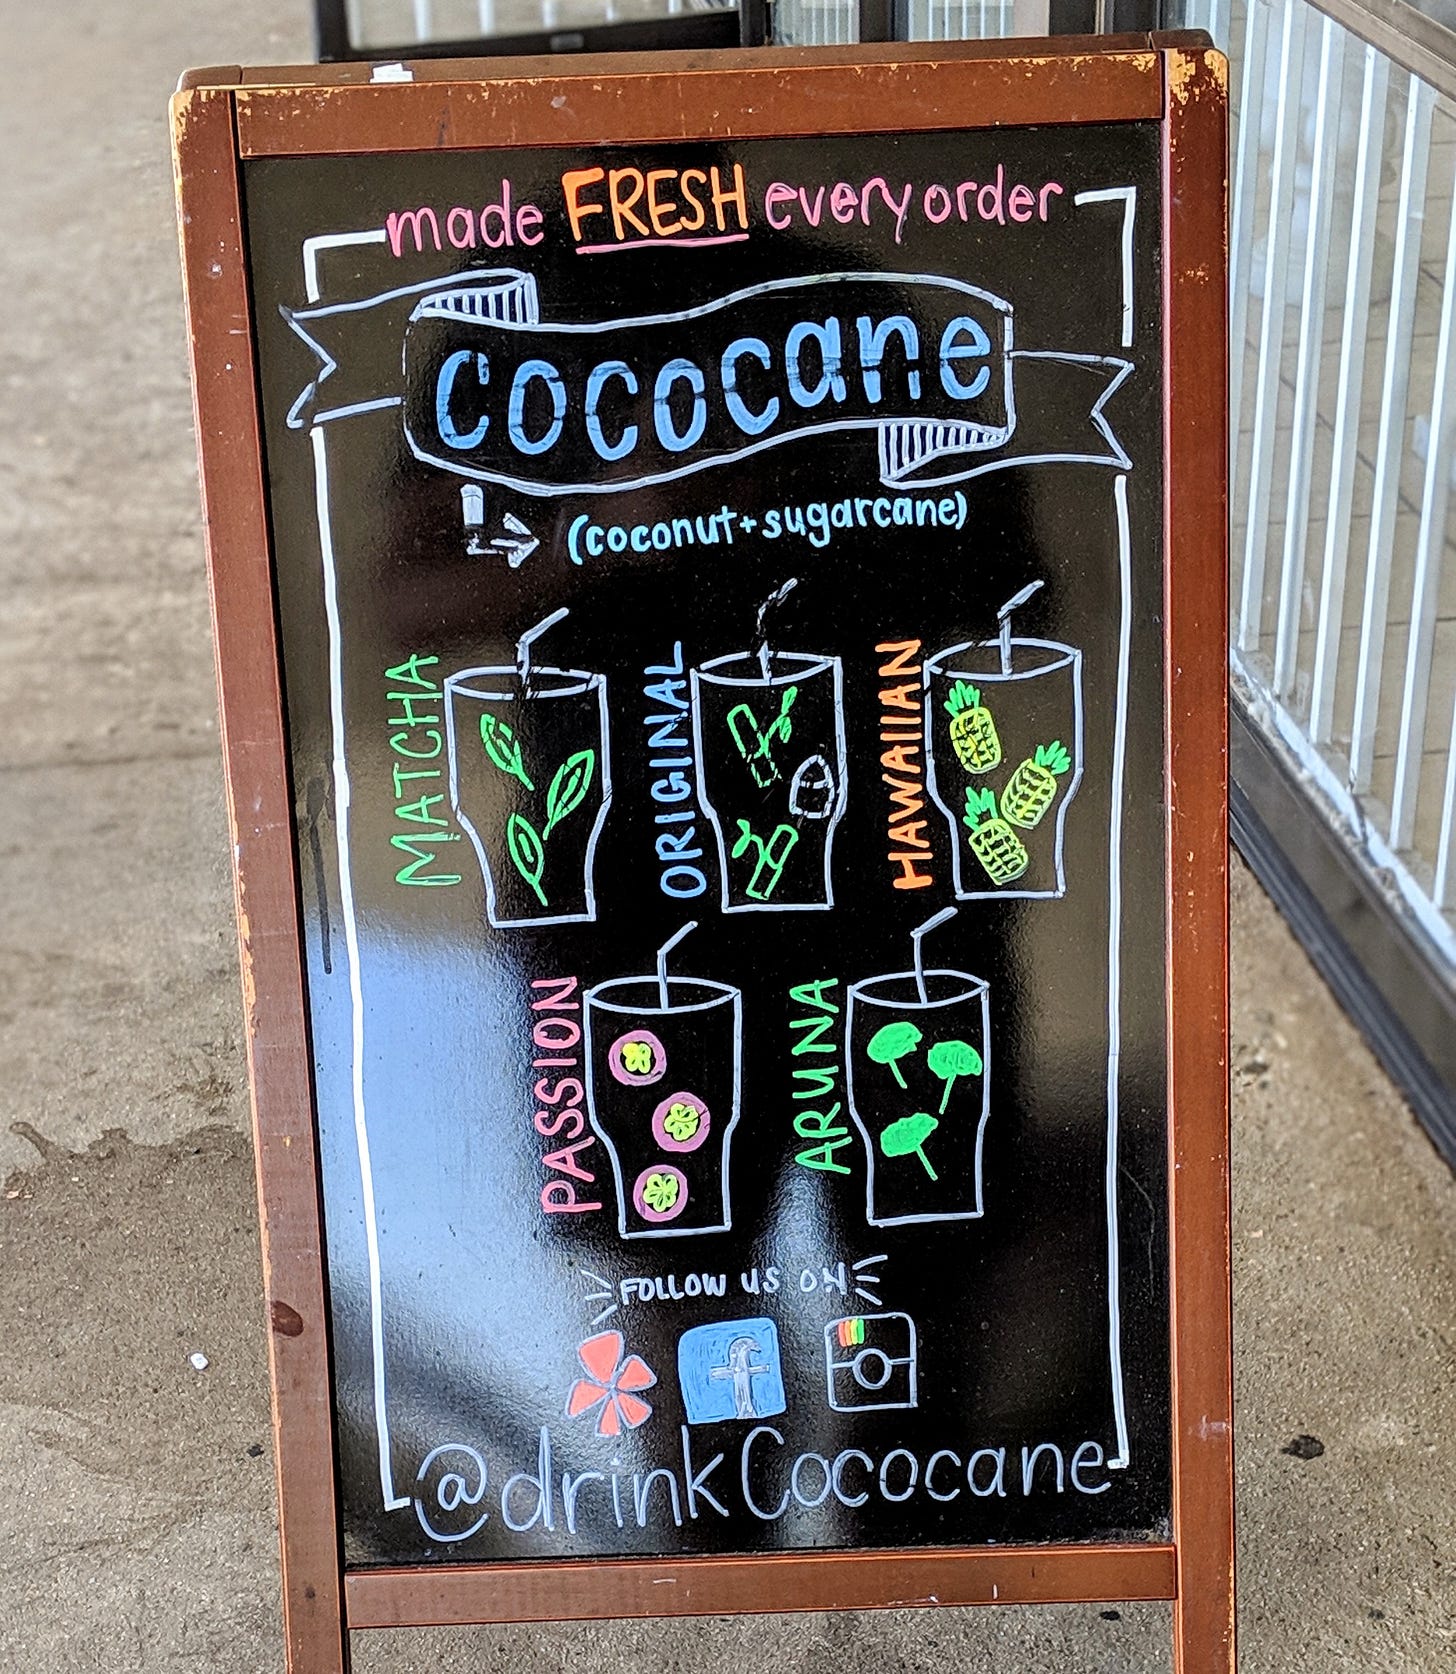 made FRESH every order
cococane
(coconut + sugarcane)
MATCHA
ORIGINAL
HAWAIIAN
PASSION
ARUNA
FOLLOW US ON
f
@drinkCococane